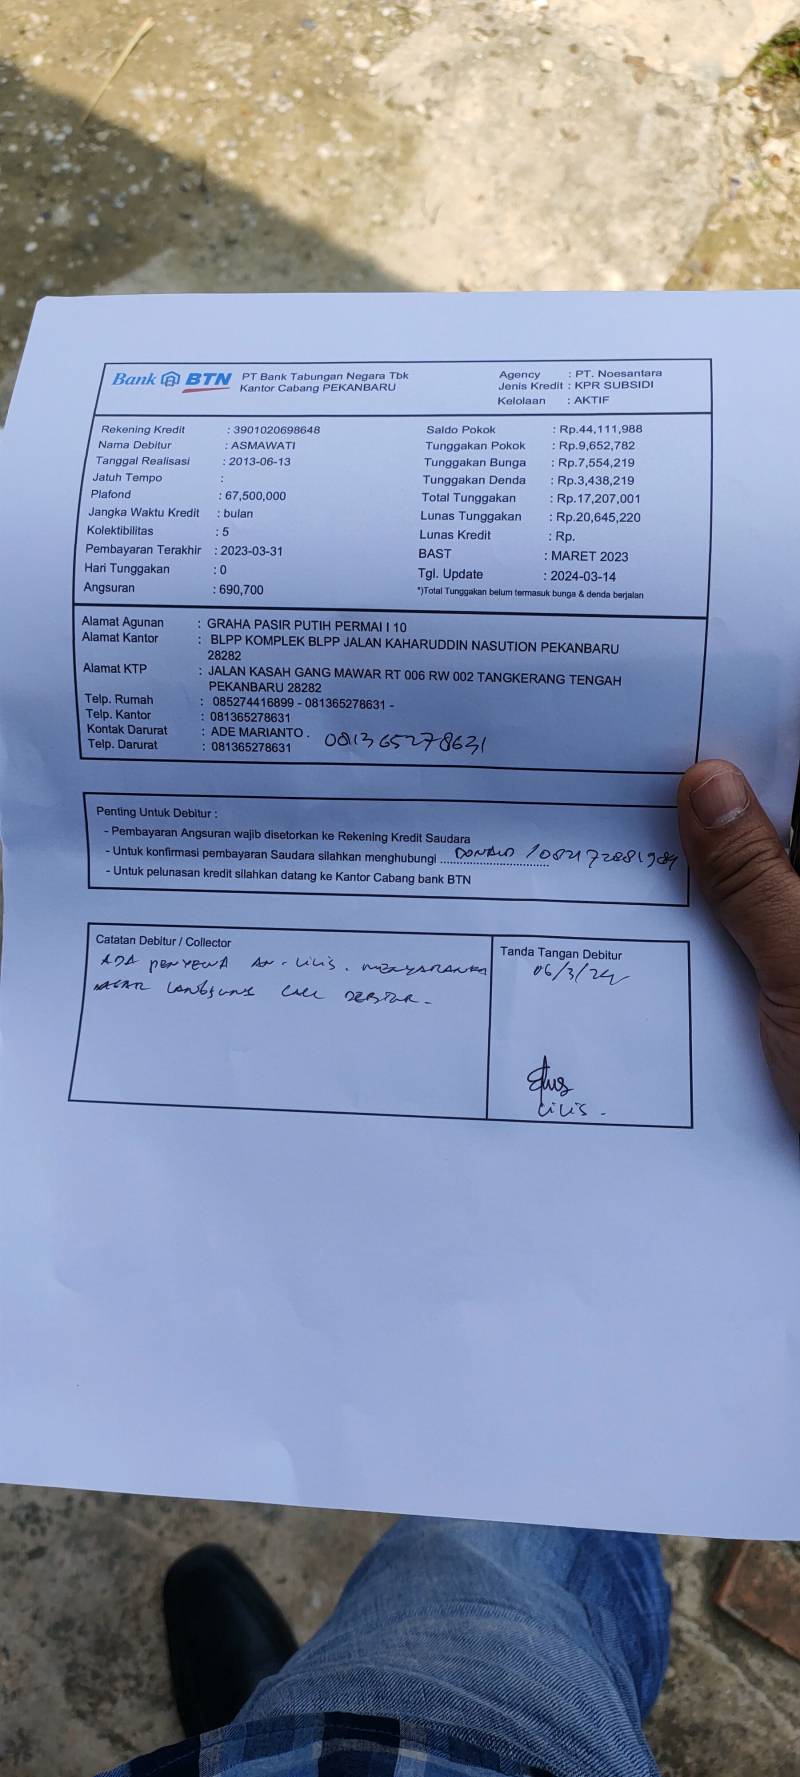 Bank BTN PT Bank Tabungan Negara Tbk
Kantor Cabang PEKANBARU
Agency : PT. Noesantara
Jenis Kredit : KPR SUBSIDI
Kelolaan : AKTIF
Rekening Kredit : 3901020698648
Nama Debitur : ASMAWATI
Tanggal Realisasi : 2013-06-13
Jatuh Tempo :
Plafond : 67,500,000
Jangka Waktu Kredit : bulan
Kolektibilitas : 5
Pembayaran Terakhir : 2023-03-31
Hari Tunggakan : 0
Angsuran : 690,700
Saldo Pokok : Rp.44,111,988
Tunggakan Pokok : Rp.9,652,782
Tunggakan Bunga : Rp.7,554,219
Tunggakan Denda : Rp.3,438,219
Total Tunggakan : Rp.17,207,001
Lunas Tunggakan : Rp.20,645,220
Lunas Kredit : Rp.
BAST : MARET 2023
Tgl. Update : 2024-03-14
*)Total Tunggakan belum termasuk bunga & denda berjalan
Alamat Agunan : GRAHA PASIR PUTIH PERMAI I 10
Alamat Kantor : BLPP KOMPLEK BLPP JALAN KAHARUDDIN NASUTION PEKANBARU
28282
Alamat KTP : JALAN KASAH GANG MAWAR RT 006 RW 002 TANGKERANG TENGAH
PEKANBARU 28282
Telp. Rumah : 085274416899 - 081365278631 -
Telp. Kantor : 081365278631
Kontak Darurat : ADE MARIANTO .
Telp. Darurat : 081365278631 081365278631
Penting Untuk Debitur :
- Pembayaran Angsuran wajib disetorkan ke Rekening Kredit Saudara
- Untuk konfirmasi pembayaran Saudara silahkan menghubungi DONALD / 082172881984
- Untuk pelunasan kredit silahkan datang ke Kantor Cabang bank BTN
Catatan Debitur / Collector
ADA PENYEWA AN - LILIS. MENYARANKN
AGAR LANGSUNG CALL DEBITUR -
Tanda Tangan Debitur
06/3/24
LILIS -